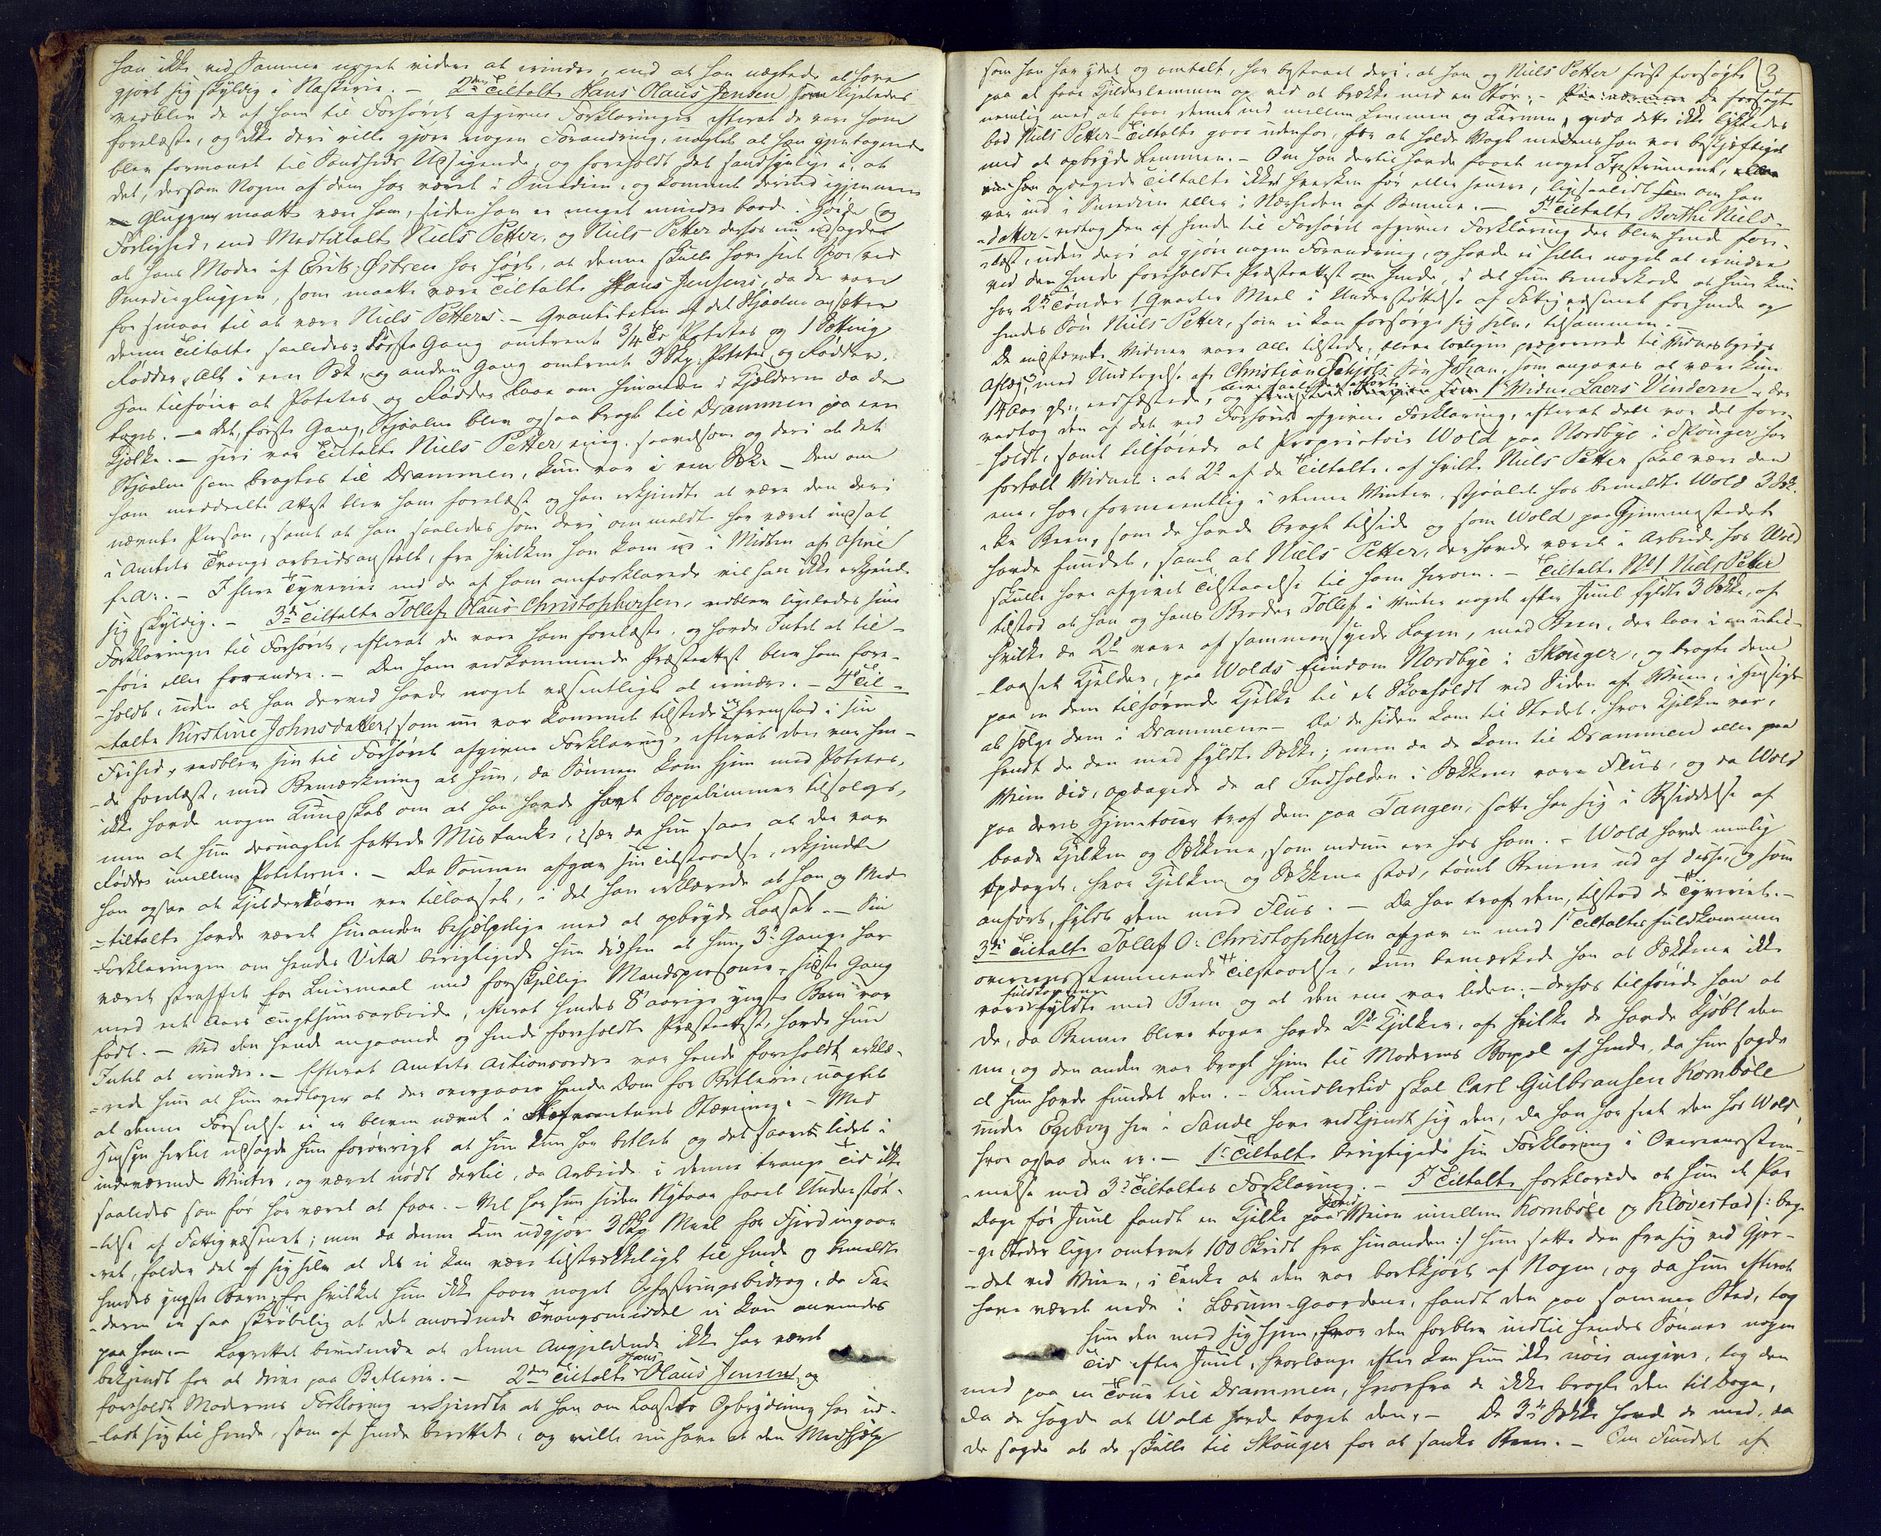 han ikke ved Samme noget videre at erindre, end at han nægtede at have
gjort sig skyldig i Naskerie. — 2den Tiltalte Hans Olaus Jensen som ligeledes
vedblev de af ham til Forhöret afgivne Forklaringer efterat de vare ham
forelæste, og ikke deri ville gjøre nogen Forandring, uagtet at han igjentagende
blev formanet til Sandheds Udsigende, og foreholdt det sandsynlige i, at
det, dersom Nogen af dem har været i Smedien, og kommet derind igjennem
Gluggen maatte være ham, siden han er meget mindre baade i Høide og
Førlighed, end Medtiltalte Niels Petter, og Niels Petter derhos nu udsagde
at hans Moder af Erik Østren har hørt, at denne skulle have seet Spor ved
Smedieglugen, som maatte være Tiltalte Hans Jensens, da de vare
for smaae til at være Niels Petters. — Qvantiteten af det Stjaalne ansætter
denne Tiltalte saaledes: første Gang omtrent 3/4 Td Potetes og 1 Sætting
Rødder, Alt i een Sæk, og anden Gang omtrent 3 Skp. Potetes og Rødder.
Han tilføier at Potetes og Rødder laae om hinanden i Kjelderen da de
toges. — Det, første Gang, Stjaalne blev ogsaa bragt til Drammen paa een
Kjelke. — Heri var Tiltalte Niels Petter enig, saavelsom og deri at det
Stjaalne som bragtes til Drammen, kun var i een Sæk. — Den om
ham meddeelte Attest blev ham forelæst og han erkjendte at være den deri
nævnte Person, samt at han saaledes som deri ommeldt har været indsat
i Amtets Tvangsarbeidsanstalt, fra hvilken han kom ud i Midten af April
f. a. — I flere Tyverier end de af ham omforklarede vil han ikke erkjende
sig skyldig. — 3die Tiltalte Tollef Olaus Christophersen, vedblev ligeledes sine
Forklaringer til Forhöret, efterat de vare ham forelæste, og havde Intet at til-
-føie eller forandre. — Den ham vedkommende Præsteattest blev ham fore-
-holdt, uden at han derved havde noget væsentligt at erindre. — 4de Til-
-talte Kirstine Johnsdatter, som nu var kommet tilstede og fremstod i sin
Frihed, vedblev sin til Forhöret afgivne Forklaring, efterat den var hen-
-de forelæst, med Bemærkning at hun, da Sønnen kom hjem med Potetes,
ikke havde nogen Kundskab om at han havde havt Soppelimmer tilsalgs,
men at hun desuagtet fattede Mistanke, især da hun saae at der var
Rødder imellem Poteterne. — Da Sønnen afgav sin Tilstaaelse, erkjendte
han ogsaa at Kjelderdøren var tillaaset, i det han erklærede at han og Med-
-tiltalte havde været hinanden behjælpelige med at opbryde Laaset. — Sin
Forklaring om hendes Vita berigtigede hun dithen at hun 3de Gange har
været straffet for Leiermaal med forskjellige Mandspersoner, sidste Gang
med eet Aars Tugthuusarbeide, efterat hendes 8 aarige yngste Barn var
født. — Ved den hende angaaende og hende foreholdte Præsteattest, havde hun
Intet at erindre. — Efterat Amtets Actionsordre var hende foreholdt erklæ-
-rede hun at hun vedtager at der overgaaer hende Dom for Betlerie, uagtet
at denne Forseelse ei er bleven nævnt i Referentens Stævning. — Med
Hensyn hertil udsagde hun forøvrigt at hun kun har betlet og det saare lidet i
indeværende Vinter, og været nødt dertil, da Arbeide i denne trange Tid ikke
saaledes som før har været at faae. — Vel har hun siden Nytaar havt Understøt-
-telse af Fattigvæsenet; men da denne kun udgjør 3 Skp Meel for Fjerdingaa-
-ret, falder det af sig selv at det ei kan være tilstrækkeligt til hende og bemeldte
hendes yngste Barn, for hvilket hun ikke faaer noget Opfostringsbidrag, da Fa-
-deren er saa skrøbelig at det anordnede Tvangsmiddel ei kan anvendes
paa ham. — Lagrettet bevidnede at denne Angjeldende ikke har været
bekjendt for at drive paa Betlerie. — 2den Tiltalte Hans Olaus Jensen og
foreholdt Moderens Forklaring erkjendte at han om Laasets Opbrydning har ud-
-ladt sig til hende, som af hende berettet, og ville nu have at den Medhjælp
som han har ydet og omtalt, har bestaaet deri, at han og Niels Petter først forsøgte 3
paa at faae Kjelderlemmen op ved at brække med en Stør; — de forsøgte
nemlig med at faae denne ind mellem Lemmen og Karmen, og da dette ikke lykkedes
bad Niels Petter Tiltalte gaae udenfor, for at holde Vagt medens han var beskjæftiget
med at opbryde Lemmen. — Om han dertil havde faaet noget Instrument,
opdagede Tiltalte ikke hverken før eller senere, ligesaalidt som om han
var inde i Smedien eller i Nærheden af Samme. — 5te Tiltalte Berthe Niels-
-datter vedtog den af hende til Forhöret afgivne Forklaring der blev hende fore-
-læst, uden deri at gjøre nogen Forandring, og havde ei heller noget at erindre
ved den hende foreholdte Præsteattest om hende, i det hun bemærkede at hun kun
har 2de Tønder 1 Qvarter Meel i Understøttelse af Fattigvæsenet for hende og
hendes Søn Niels Petter, som ei kan forsørge sig selv tilsammen.
De indstævnte Vidner vare alle tilstede, bleve lovligen præparerede til Vidnesbyrds
Aflæg, med Undtagelse af Christian Søn Johan, som angaves at være kun
14 Aar gl., eedfæstede, og 1ste Vidne Laers Vindern, der
vedtog den af det ved Forhöret afgivne Forklaring, efterat dette var det fore-
-holdt, samt tilføiede at Proprietair Wold paa Nordbye i Skouger har
fortalt Vidnet: at 2de af de Tiltalte, af hvilke Niels Petter skal være den
ene, har, formeentlig i denne Vinter, stjaalet hos bemeldte Wold 3 Sæk-
-ke Been, som de havde bragt tilside og som Wold paa Gjemmestedet
havde fundet, samt at Niels Petter, der havde været i Arbeide hos Wold
skulle have afgivet Tilstaaelse til ham herom. — Tiltalte No 1 Niels Petter
tilstod at han og hans Broder Tollef i Vinter noget efter Juul fyldte 3 Sække, af
hvilke de 2de vare af sammensyede Lagen, med Been, der laae i en util-
-laaset Kjelder, paa Wolds Eiendom Nordbye i Skouger, og bragte dem
paa en dem tilhørende Kjelke til et Skovholdt ved Siden af Veien, i Hensigt
at sælge dem i Drammen. — Da de siden kom til Stedet, hvor Kjelken var,
fandt de den med fyldte Sække; men da de kom til Drammen eller paa
Veien did, opdagede de at Indholden i Sækkene vare Fliis, og da Wold
paa deres Hjemtour traf dem paa Tangen, satte han sig i Besiddelse af
baade Kjelken og Sækkene, som endnu ere hos ham. — Wold havde nemlig
opdaget, hvor Kjelken og Sækkene stod, tømt Benene ud af disse, og som
anført, fyldt dem med Fliis. — Da han traf dem, tilstod de Tyveriet. —
3die Tiltalte Tollef O. Christophersen afgav en med 1ste Tiltalte fuldkommen
overeensstemmende Tilstaaelse, kun bemærkede han at Sækkene ikke
vare fuldkommen fyldte med Been, og at den ene var liden; — derhos tilføiede han at
de, da Benene bleve tagne havde 2de Kjelker, af hvilke de havde kjøbt den
ene, og den anden var bragt hjem til Moderens Bopæl af hende, da hun sagde
at hun havde fundet den. — Imidlertid skal Carl Gulbransen Kornbøle
under Egeberg her i Sande have vedkjendt sig den, da han har seet den hos Wold,
hvor ogsaa den er. — 1ste Tiltalte berigtigede sin Forklaring i Overeensstem-
-melse med 3die Tiltaltes Forklaring. — 5te Tiltalte forklarede at hun et Par
Dage før Juul fandt en Kjelke paa Veien imellem Kornbøle og Kløvestad /: beg-
-ge Steder ligge omtrent 100 Skridt fra hinanden :/ hun satte den fra sig ved Gjer-
-det ved Veien, i Tanke at den var bortkjørt af Nogen, og da hun efterat
have været nede i Læsum-Gaardene, fandt den paa samme Sted, tog
hun den med sig hjem, hvor den forblev indtil hendes Sønner nogen
Tid efter Juul, hvorlænge efter kan hun ikke nöie angive, tog den
med paa en Tour til Drammen, hvorfra de ikke bragte den tilbage,
da de sagde at Wold havde taget den. — De 3de Sække havde de med, da
de sagde at de skulle til Skouger for at sanke Been. — Om Fundet af